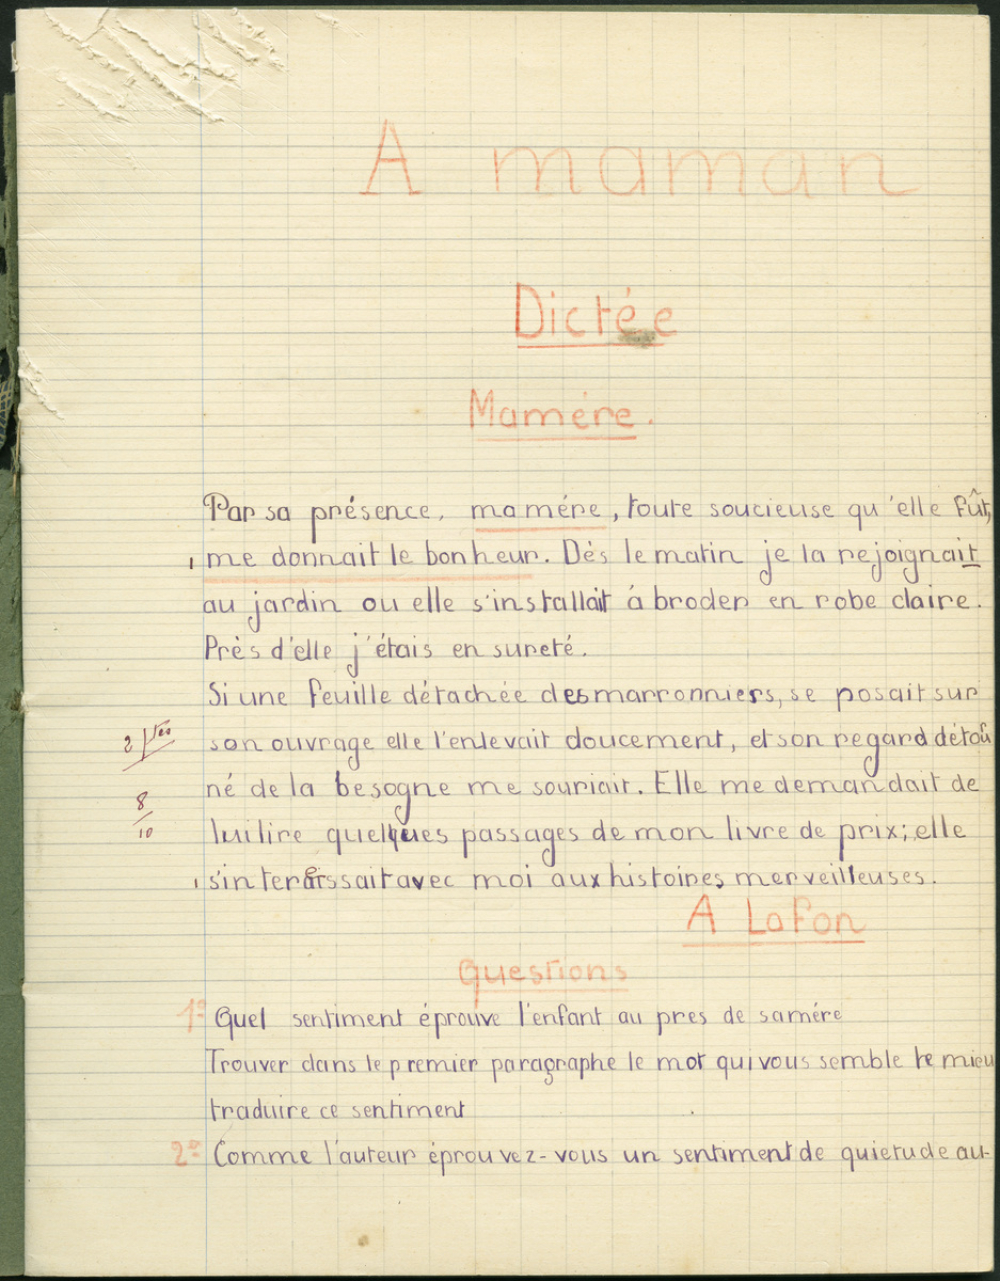 A maman
Dictée
Mamére.
Par sa présence, mamére, toute soucieuse qu'elle fût,
me donnait le bonheur. Dés le matin je la rejoignait
au jardin ou elle s'installait á broder en robe claire.
Près d'elle j'étais en sureté.
Si une feuille détachée des marronniers, se posait sur
son ouvrage elle l'enlevait doucement, et son regard détour
né de la besogne me souriait. Elle me demandait de
lui lire quelques passages de mon livre de prix; elle
s'interéssait avec moi aux histoires merveilleuses.
2 ftes
8/10
A Lafon
Questions
1º Quel sentiment éprouve l'enfant au pres de samére
Trouver dans le premier paragraphe le mot qui vous semble le mieu
traduire ce sentiment
2º Comme l'auteur éprouvez-vous un sentiment de quietude au-